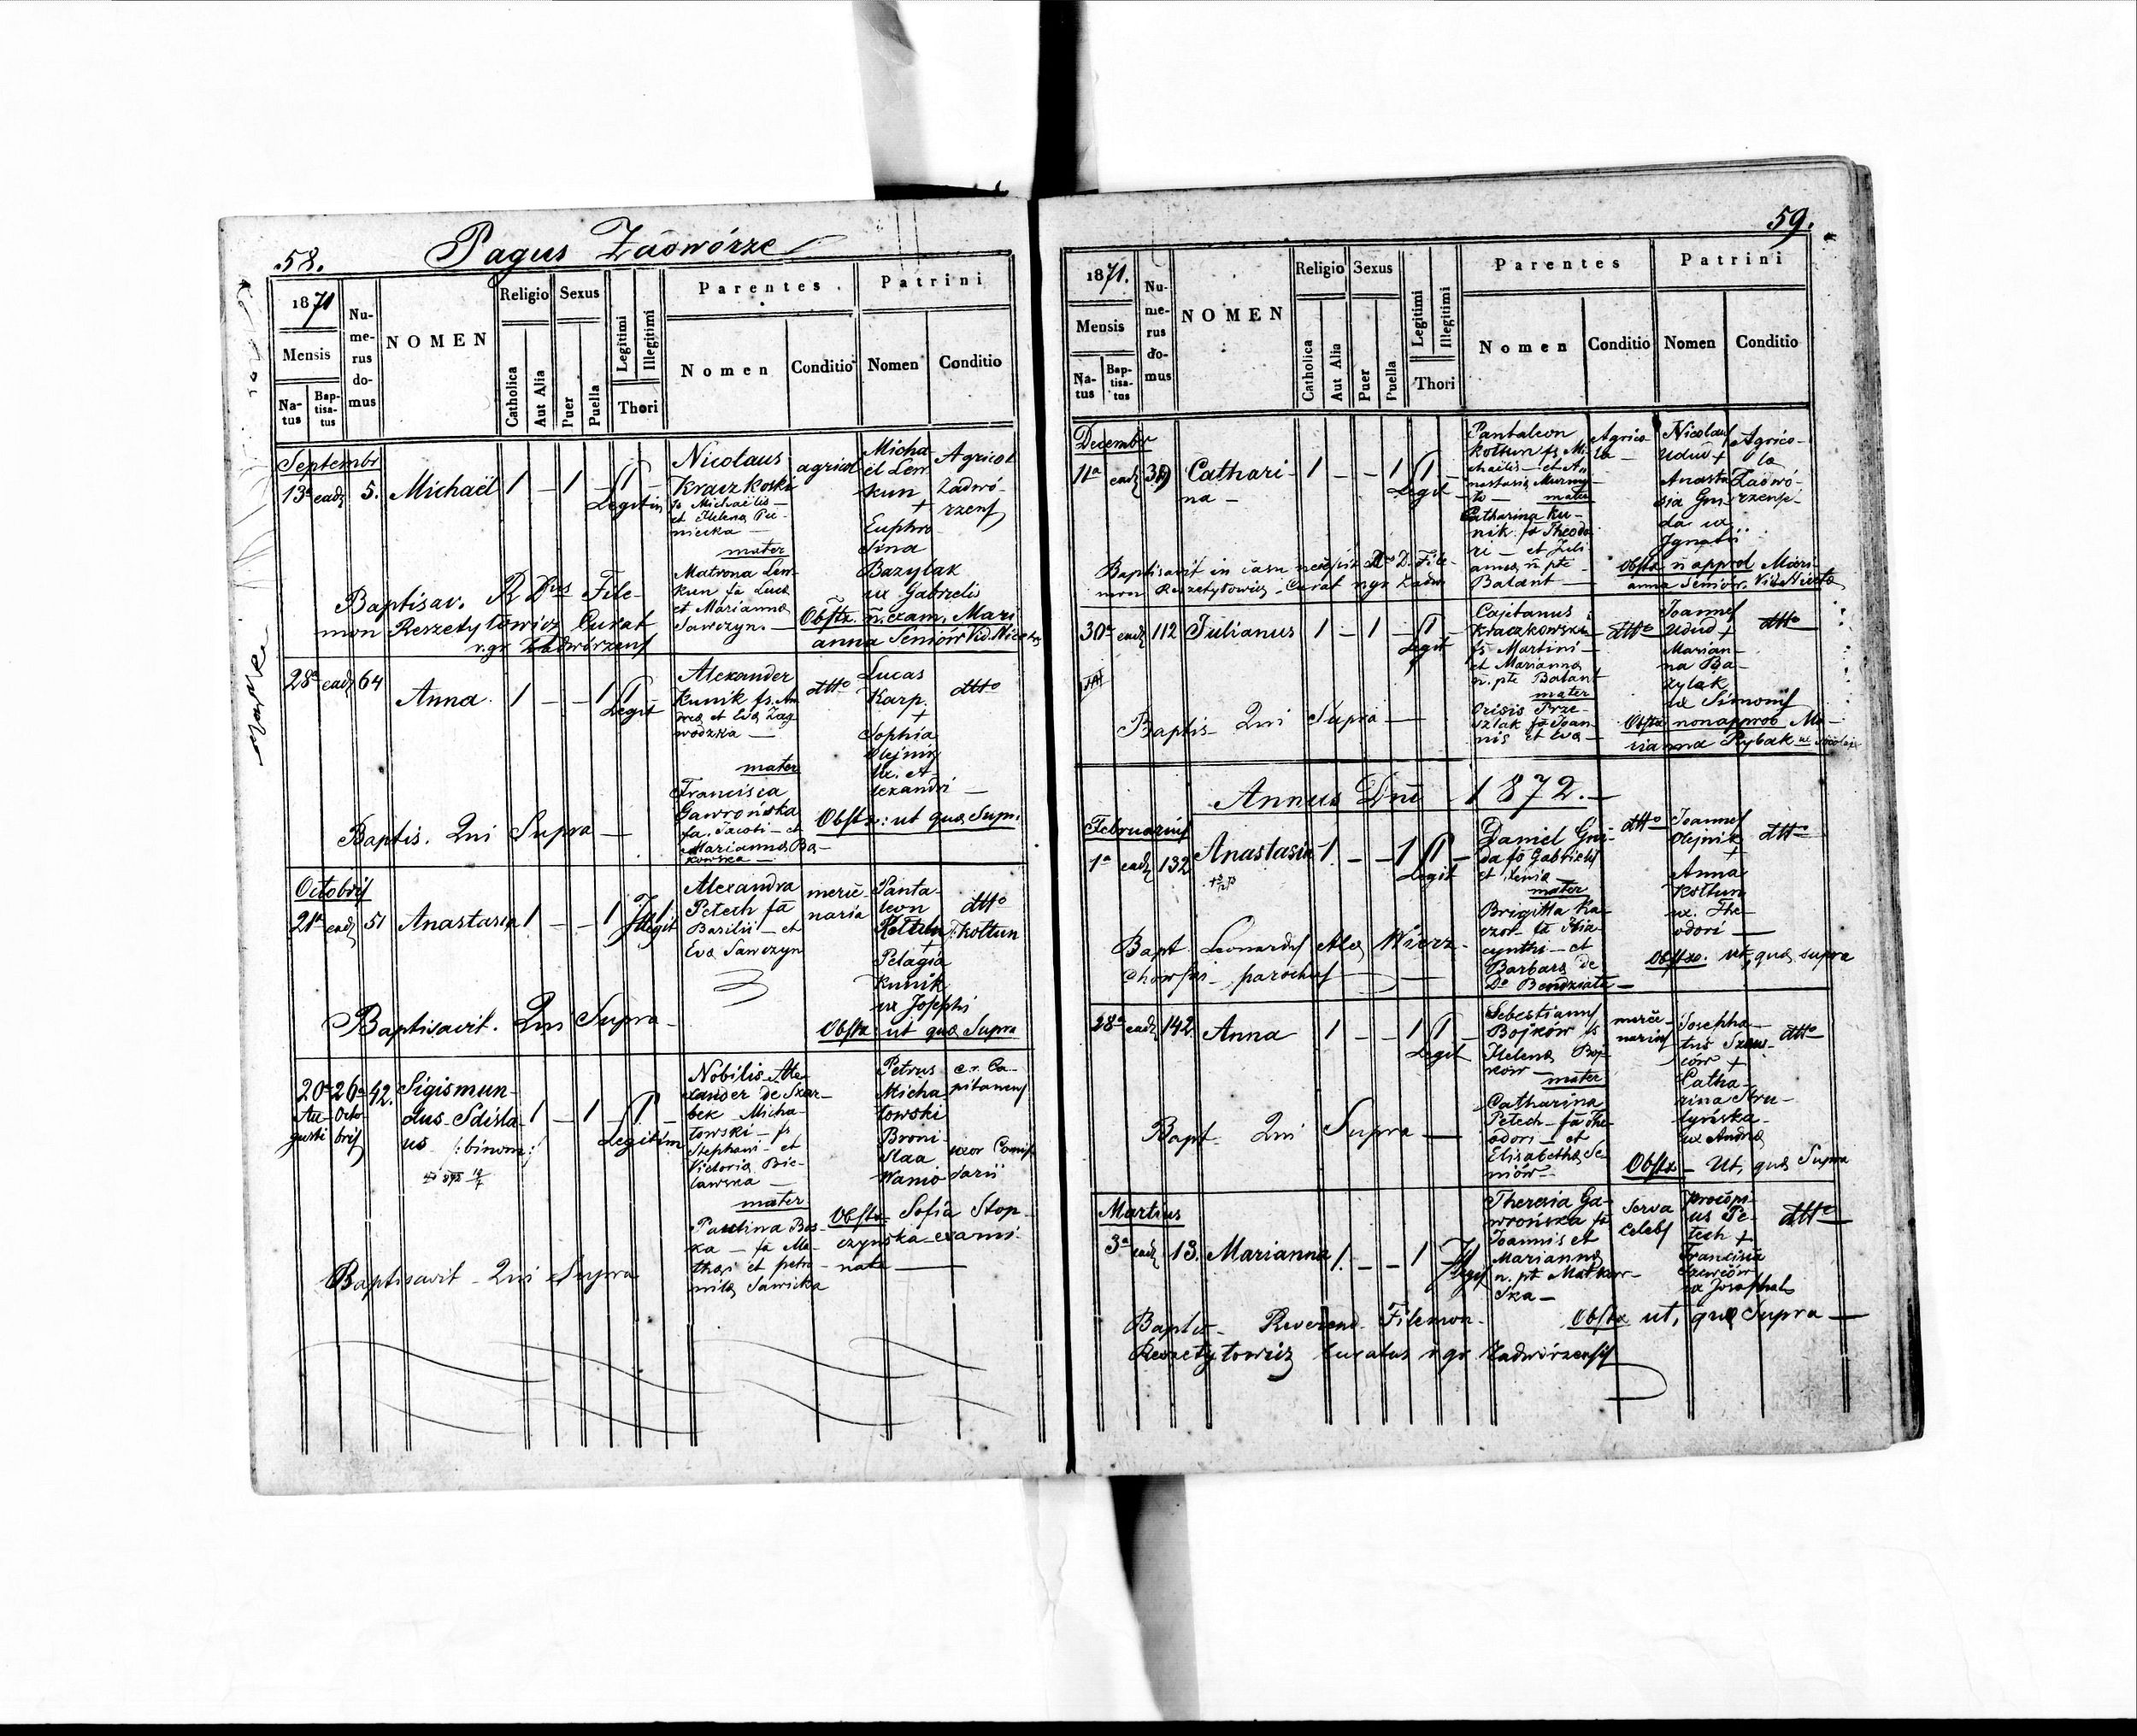 58. Pagus Zadwórze
1871
Mensis
Na-
tus
Bap-
tisa-
tus
Nu-
me-
rus
do-
mus
NOMEN
Religio
Catholica
Aut Alia
Sexus
Puer
Puella
Legitimi
Illegitimi
Thori
Parentes
Nomen
Conditio
Patrini
Nomen
Conditio
Septembr
13a ead 5. Michaël 1 – 1 – 1 –
Legitim
Nicolaus
Kraczkoski
fs Michaëlis
et Helena
mater
Matrona Lew-
kun fa Luca
et Marianna
Sawczyn. –
agricol
Micha
ël Lew
kun
+
Euphro
sina
Bazylak
ux Gabrielis
Agricol
Zadwó-
rzens
Baptisav. R Dus File-
mon Reszetyłowicz Curat
r. gr Zadwórzens
Obstx. ñ. exam. Mari
anna Seniów Vid. Niceta
28a ead 64
Anna. 1 – – 1 1 –
Legit
Alexander
Kunik fs. An
drea et Eva Zag
wodzka –
mater
Francisca
Gawrońska
fa. Jacobi – et
Marianna Ba-
kowska –
dtto
Lucas
Karp.
+
Sophia
Olejnik
ux. A-
lexandri –
dtto
Baptis. Qui Supra –
Obstx: ut qua Supr.
Octobris
21a ead 51 Anastasia 1 – – 1 – 1
Illegit
Alexandra
Petech fa
Basilii – et
Eva Sawczyn
merce
naria
Panta-
leon
Kołtun
+
Pelagia
Kunik
ux Josephi
dtto
/: Kołtun
Baptisavit. Qui Supra –
Obstx: ut qua Supra
20a 26a 42. Sigismun-
Au- Octo- dus – Sdisla- 1 – 1 – 1 –
gusti bris us /: binom :/ Legitim
Nobilis Ale-
xander de Skar-
bek Micha-
łowski – fs
Stephani – et
Victoria Bie-
lawska –
mater
Paulina Bos-
ka – fa Ma-
thei et petro-
nila Sawicka
Petrus
Micha
łowski
Broni
slaa
Wanio
c. r. Ca-
pitaneus
uxor Comis-
sarii
Obstx. Sofia Stop-
czynska – exami-
nata –
Baptisavit – Qui Supra
59.
1871.
Mensis
Na-
tus
Bap-
tisa-
tus
Nu-
me-
rus
do-
mus
NOMEN
Religio
Catholica
Aut Alia
Sexus
Puer
Puella
Legitimi
Illegitimi
Thori
Parentes
Nomen
Conditio
Patrini
Nomen
Conditio
Decembr
11a ead 39 Cathari- 1 – – 1 1 –
na – Legit
Pantaleon
Kołtun fs Mi-
chaëlis – et A-
nastasia
mater
Catharina Ku-
nik fa Theodo-
ri – et Juli-
anna ñ pte
Balant –
Agrico
la –
Nicolaus
Udud +
Anasta
sia Gni-
da ux
Ignatii
Agrico-
la
Zadwó-
rzens
Baptisavit in casu R. D. File-
mon Reszetyłowicz – Curat r gr Zadw
Obstx ñ approb Mari-
anna Seniów. Vid. Niceta
30a ead 112 Julianus 1 – 1 – 1 –
Legit
Cajetanus
Kraczkowski
fs Martini –
et Marianna
ñ. pte Balant
mater
Prze-
szlak fa Joan-
nis et Eva –
dtto
Joannes
Udud +
Marian-
na Ba-
zylak
ux Simonis
dtto
Baptis – Qui Supra –
Obstx non approb Ma-
rianna Rybak ux
Annus Dni 1872. –
Februarius
1a ead 132 Anastasia 1. – – 1 1 –
Legit
Daniel Gni-
da fs Gabrielis
et Xenia
mater
Brigitta Ka-
czor – fa Hia
cynthi – et
Barbara de
Do Bendziata –
dtto
Joannes
Olejnik
+
Anna
Kołtun
ux. The-
odori –
dtto
Bapt Leonardus Wierz-
chowski – parochus –
Obstx. ut, qua supra
28a ead 142 Anna 1 – – 1 1 –
Legit
Sebestianus
Bojków fs
Helena Boj-
ków –
mater
Catharina
Petech – fa The-
odori – et
Elisabetha Se-
niów –
merce-
narius
Josepha-
tus Szew-
ców +
Catha-
rina Stru-
tyńska –
ux Andrea
dtto
Bapt – Qui Supra –
Obstx – Ut, qua Supra
Martius
3a ead 13. Marianna 1. – – 1 – 1
Illegit
Theresia Ga-
wrońska fa
Joannis et
Marianna
n. pt Matkow-
ska –
Serva
celebs
Procopi-
us Pe-
tech +
Francisca
Szewców
ux Josaphati
dtto
Baptis – Reverend. Filemon – Obstx ut, qua Supra –
Reszetyłowicz Curatus r gr Zadwórzensis